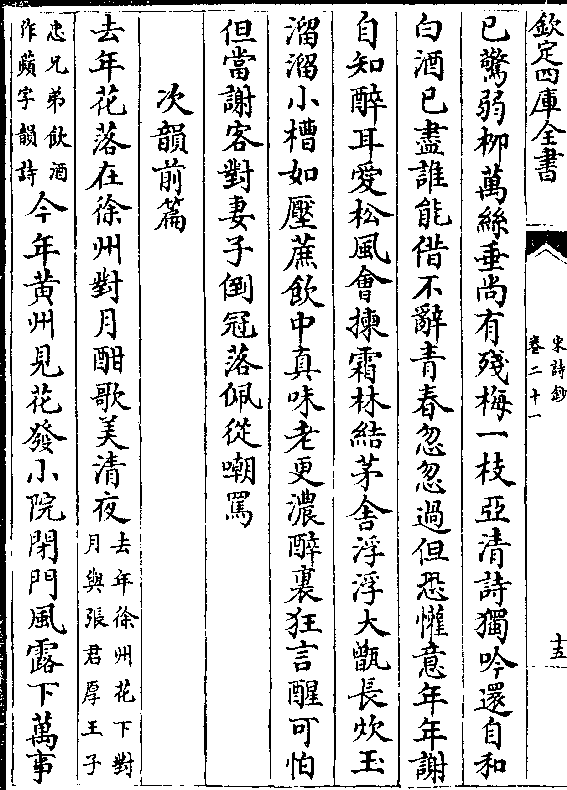 欽定四庫全書
宋詩鈔
卷二十一
十五
已驚弱柳萬絲垂尚有殘梅一枝亞清詩獨吟還自和
白酒已盡誰能借不辭青春忽忽過但恐懽意年年謝
自知醉耳愛松風會揀霜林結茅舍浮浮大甑長炊玉
溜溜小槽如壓蔗飲中真味老更濃醉裏狂言醒可怕
但當謝客對妻子倒冠落佩從嘲罵
次韻前篇
去年花落在徐州對月酣歌美清夜
去年徐州花下對
月與張君厚王子
忠兄弟飲酒
作蘋字韻詩
今年黃州見花發小院閉門風露下萬事